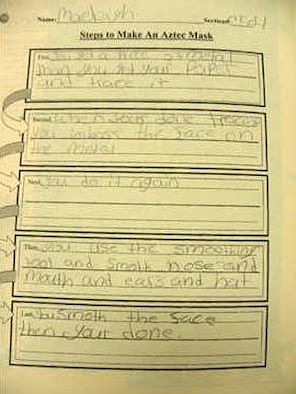 Name: Section:
Steps to Make An Aztec Mask
First, You get a Piece of metal
then you get your paper
and trace it
Second, when your done traceing
you imboss the face on
the metal
Next, you do it again
Then, you use the smoothing
tool and smoth nose and
mouth and ears and hat
Last, you smoth the face
then your done.